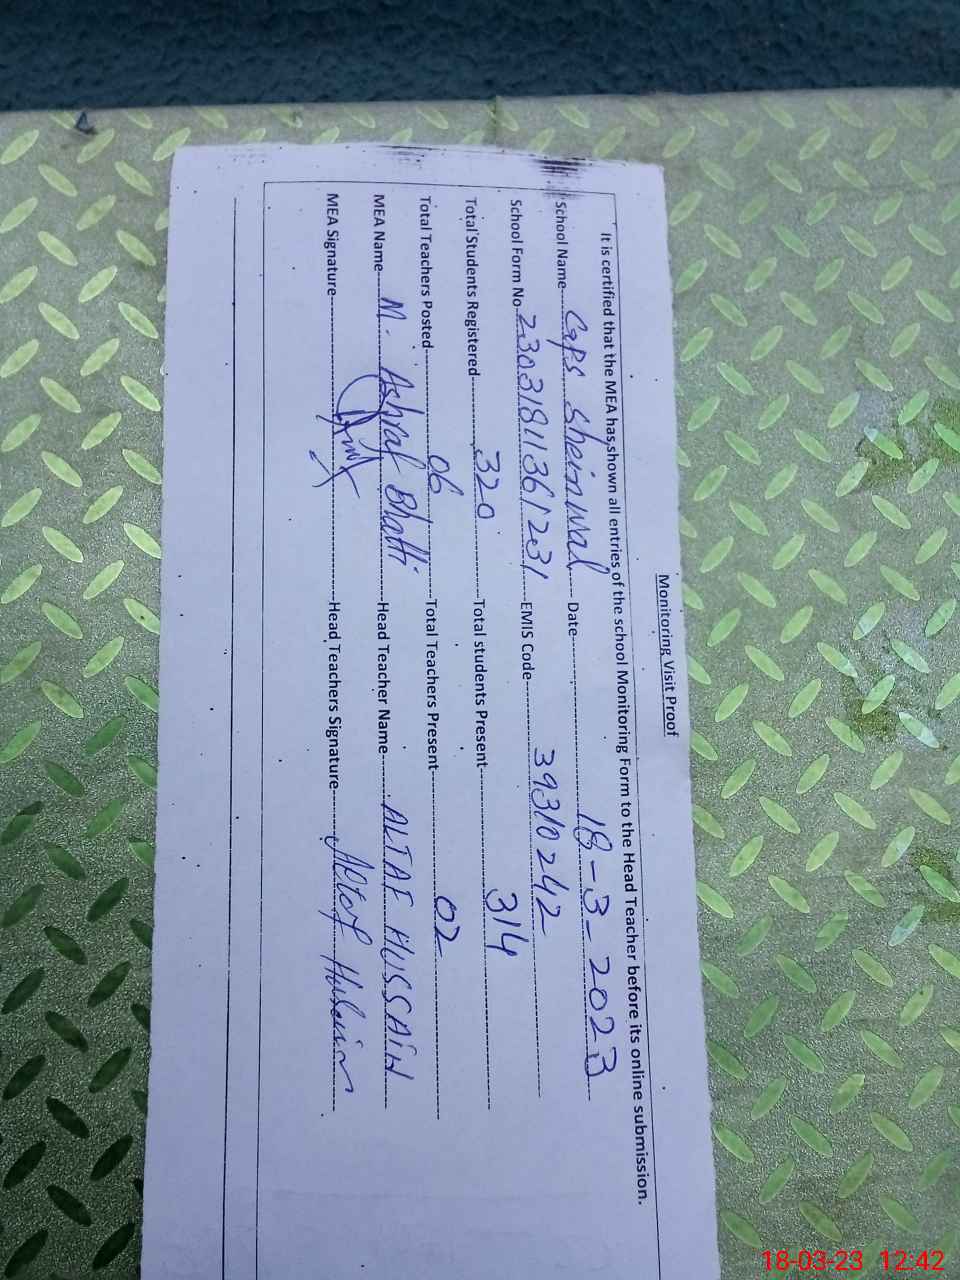 Monitoring Visit Proof
It is certified that the MEA has shown all entries of the school Monitoring Form to the Head Teacher before its online submission.
School Name GPS Sheinwal Date 18-3-2023
School Form No 23031811361231 EMIS Code 39310242
Total Students Registered 320 Total students Present 314
Total Teachers Posted 06 Total Teachers Present 02
MEA Name M. Ashraf Bhatti Head Teacher Name ALTAF HUSSAIN
MEA Signature Head Teachers Signature Altaf Hussain
18-03-23 12:42